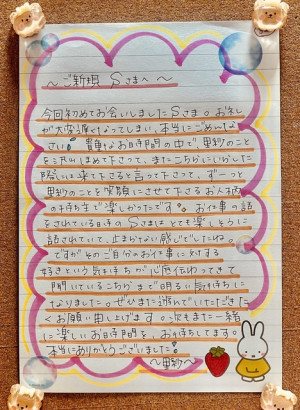 ～ご新規 Sさまへ～
今回初めてお会いしましたSさま。お礼
が大変遅くなってしまい、本当にごめんな
さい! 貴重なお時間の中で、里紗のこと
を沢山ほめて下さって、またこちらにいらした
際には来て下さると言って下さって、ずーっと
里紗のことを笑顔にさせて下さるお人柄
の持ち主で楽しかったです。お仕事の話
をされている時のSさまはとても楽しそうに
話されていて、止まらない感じでしたね。
ですがそのご自分のお仕事に対する
好きという気持ちが心底伝わってきて
聞いているこちらまで明るい気持ちに
なりました。ぜひまた遊んでいただきた
くお願い申し上げます。次もまた一緒
に楽しいお時間を、お待ちしてます。
本当にありがとうございました!
～里紗～